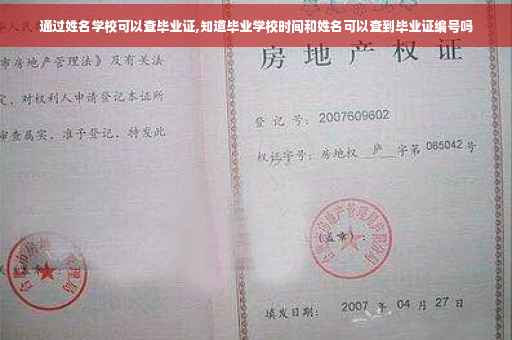 通过姓名学校可以查毕业证,知道毕业学校时间和姓名可以查到毕业证编号吗
市房地产管理法》及有关法
定，对权利人申请登记本证所
审查属实，准予登记，特发此
房地产权证
登 记 号：2007609602
权证字号：房地权 庐 字第 085042 号
(盖章)：
填发日期： 2007 年 04 月 27 日